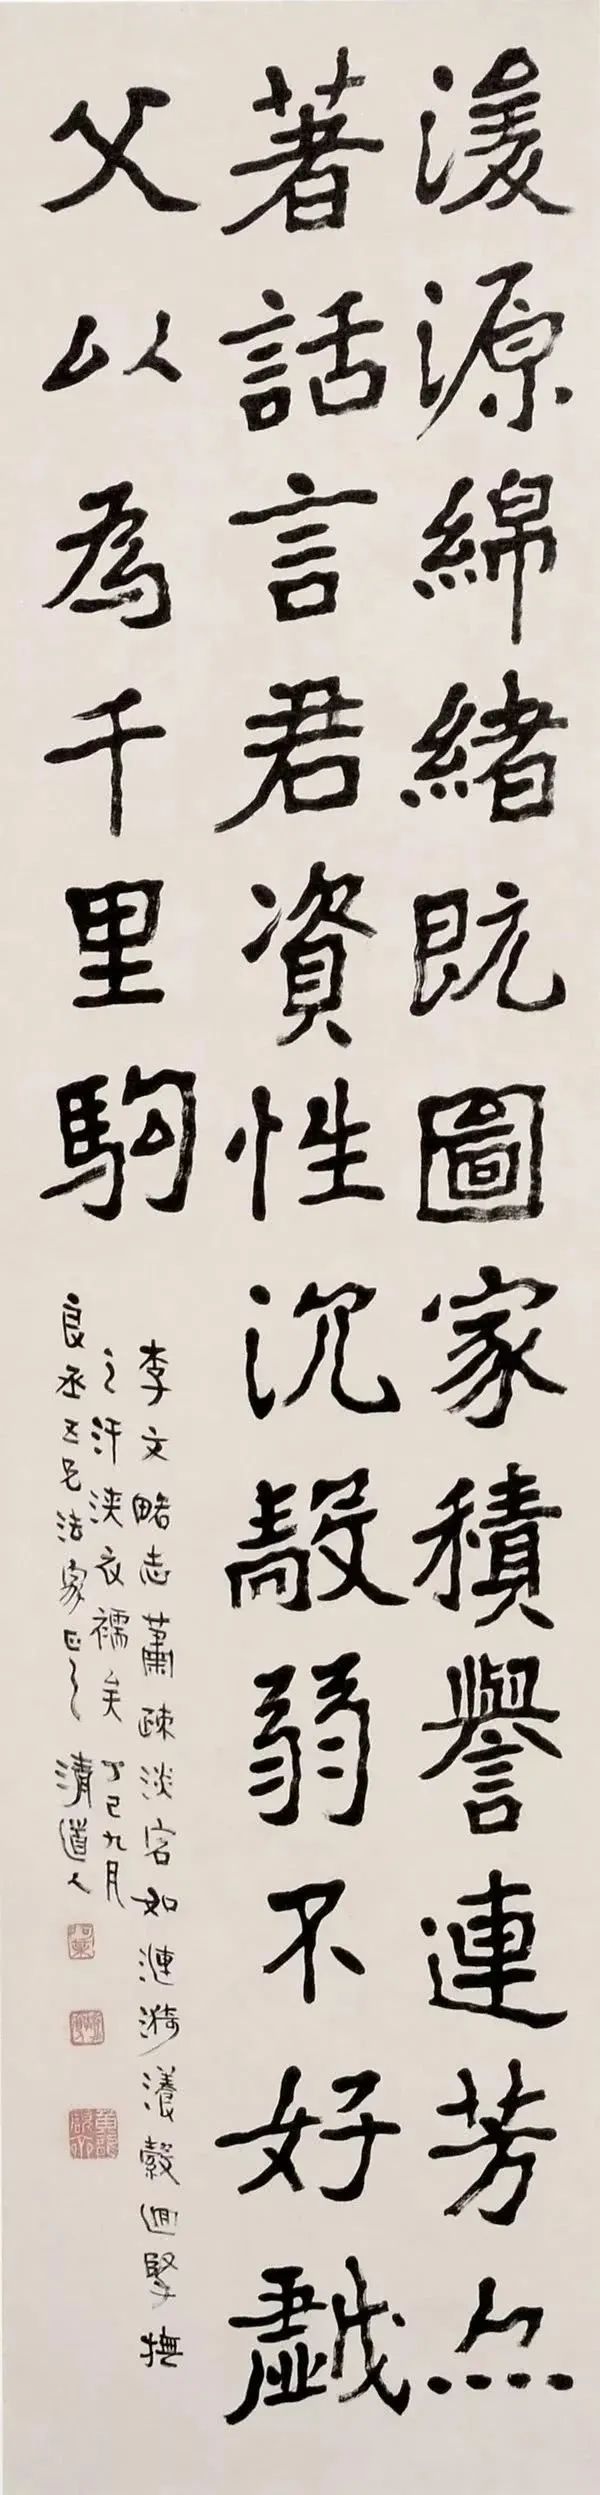 浚源綿緒既圖家積譽連芳亦
著話言君資性沉毅弱不好戲
父以為千里駒
李文略志蕭疎淡宕如漣漪瀁縠迴擥撫
之汗浹衣襦矣 丁巳九月
良丞五兄法家正之 清道人